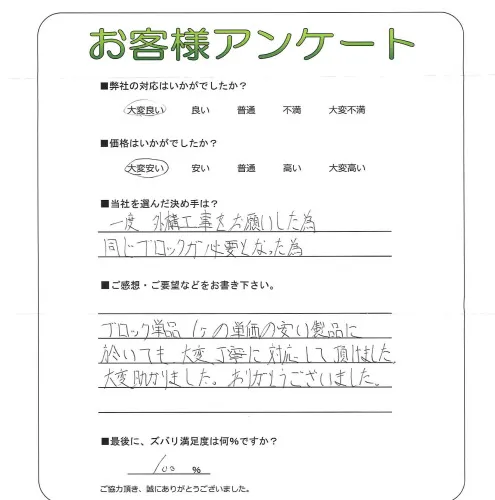 お客様アンケート
■弊社の対応はいかがでしたか？
大変良い 良い 普通 不満 大変不満
■価格はいかがでしたか？
大変安い 安い 普通 高い 大変高い
■当社を選んだ決め手は？
一度 外構工事をお願いした為
同じブロックが必要となった為
■ご感想・ご要望などをお書き下さい。
ブロック単品 1ヶの単価の安い製品に
於いても 大変丁寧に対応して頂けました
大変助かりました。ありがとうございました。
■最後に、ズバリ満足度は何%ですか？
100 %
ご協力頂き、誠にありがとうございました。